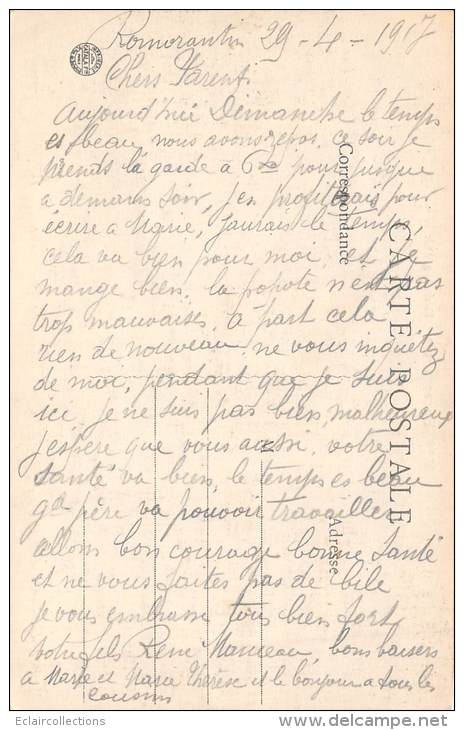 Romorantin 29-4-1917
Chers Parents
aujourd'hui Dimanche le temps
es beau, nous avons repos, ce soir je
prends la garde à 6h pour jusque
a demain soir, j'en profiterais pour
écrire a Marie, j'aurais le temps,
cela va bien pour moi, et je
mange bien, la popote n'est pas
trop mauvaises, a part cela
rien de nouveau ne vous inquietez
de moi, pendant que je suis
ici, je ne suis pas bien malheureux
j'espere que vous aussi, votre
santé va bien, le temps es beau
gd père va pouvoir travailler
allons bon courage bonne santé
et ne vous faites pas de bile
je vous embrasse tous bien fort
votre fils René bons baisers
a Marie et Marie Thérèse et le bonjour a tous les
cousins
CARTE POSTALE
Correspondance
Adresse
M
Eclaircollections
www.delcampe.net